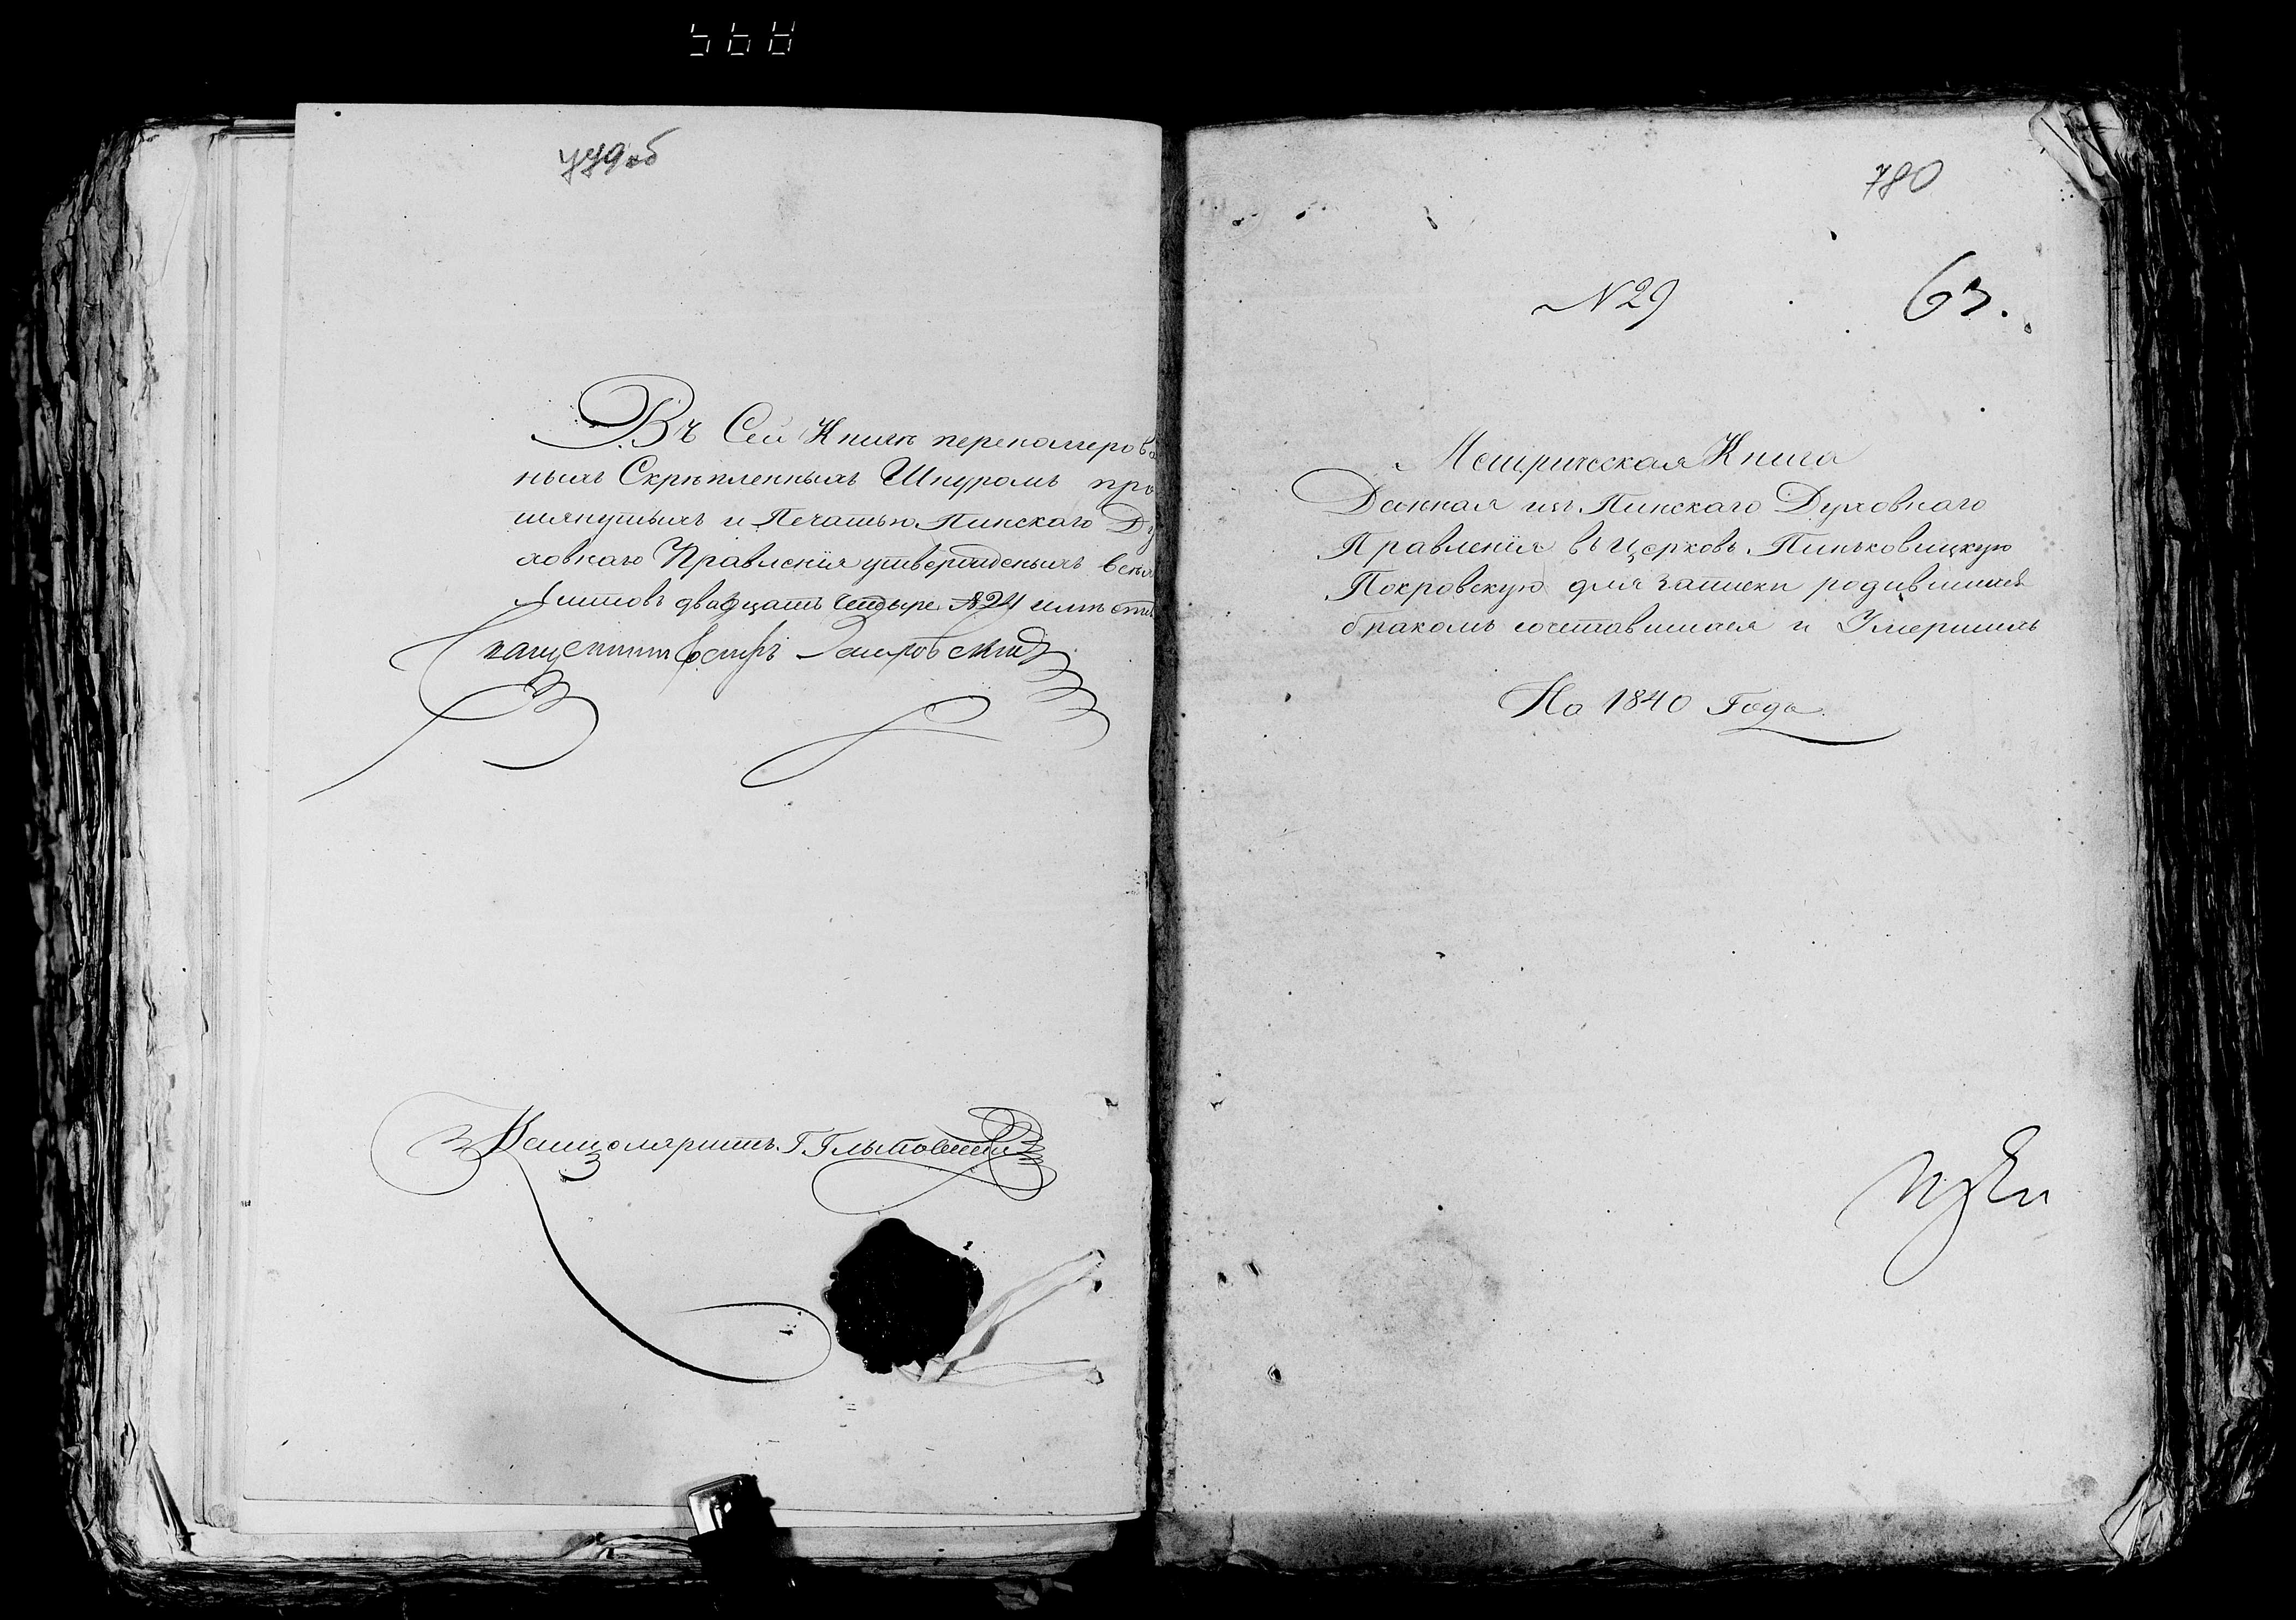 779об
Въ Сей Книгѣ переномерова
ныхъ Скрѣпленныхъ Шнуромъ про
тянутыхъ и Печатью Пинскаго Ду
ховнаго Правленія утвержденыхъ всѣхъ
Листовъ двадцать четыре №24 имѣетъ
Канцеляристъ Г
780
N29
63.
Метрическая Книга
Данная изъ Пинскаго Духовнаго
Правленія въ Церковь Пиньковицкую
Покровскую для записки родившихся
бракомъ сочетавшихся и Умершихъ
На 1840 Года